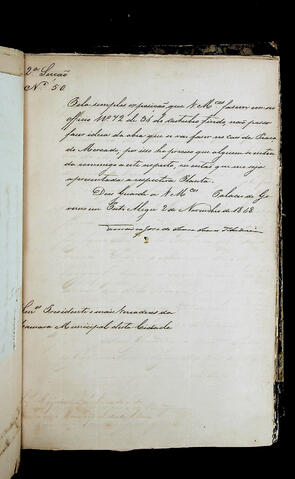 2ª Secção
Nº 50
Pela simples exposição que V. Mces fazem em seu
officio Nº 72 de 31 de Outubro findo não posso
fazer idéa da obra que se vai fazer no caes da Praça
do Mercado, por isso he preciso que alguem se entenda
comigo a este respeito, ou antes que me seja
apresentada a respectiva Planta.
Deos Guarde a V. Mces Palacio do Governo
em Porto Alegre 2 de Novembro de 1868
Presidente e mais Vereadores da
Camara Municipal desta Cidade